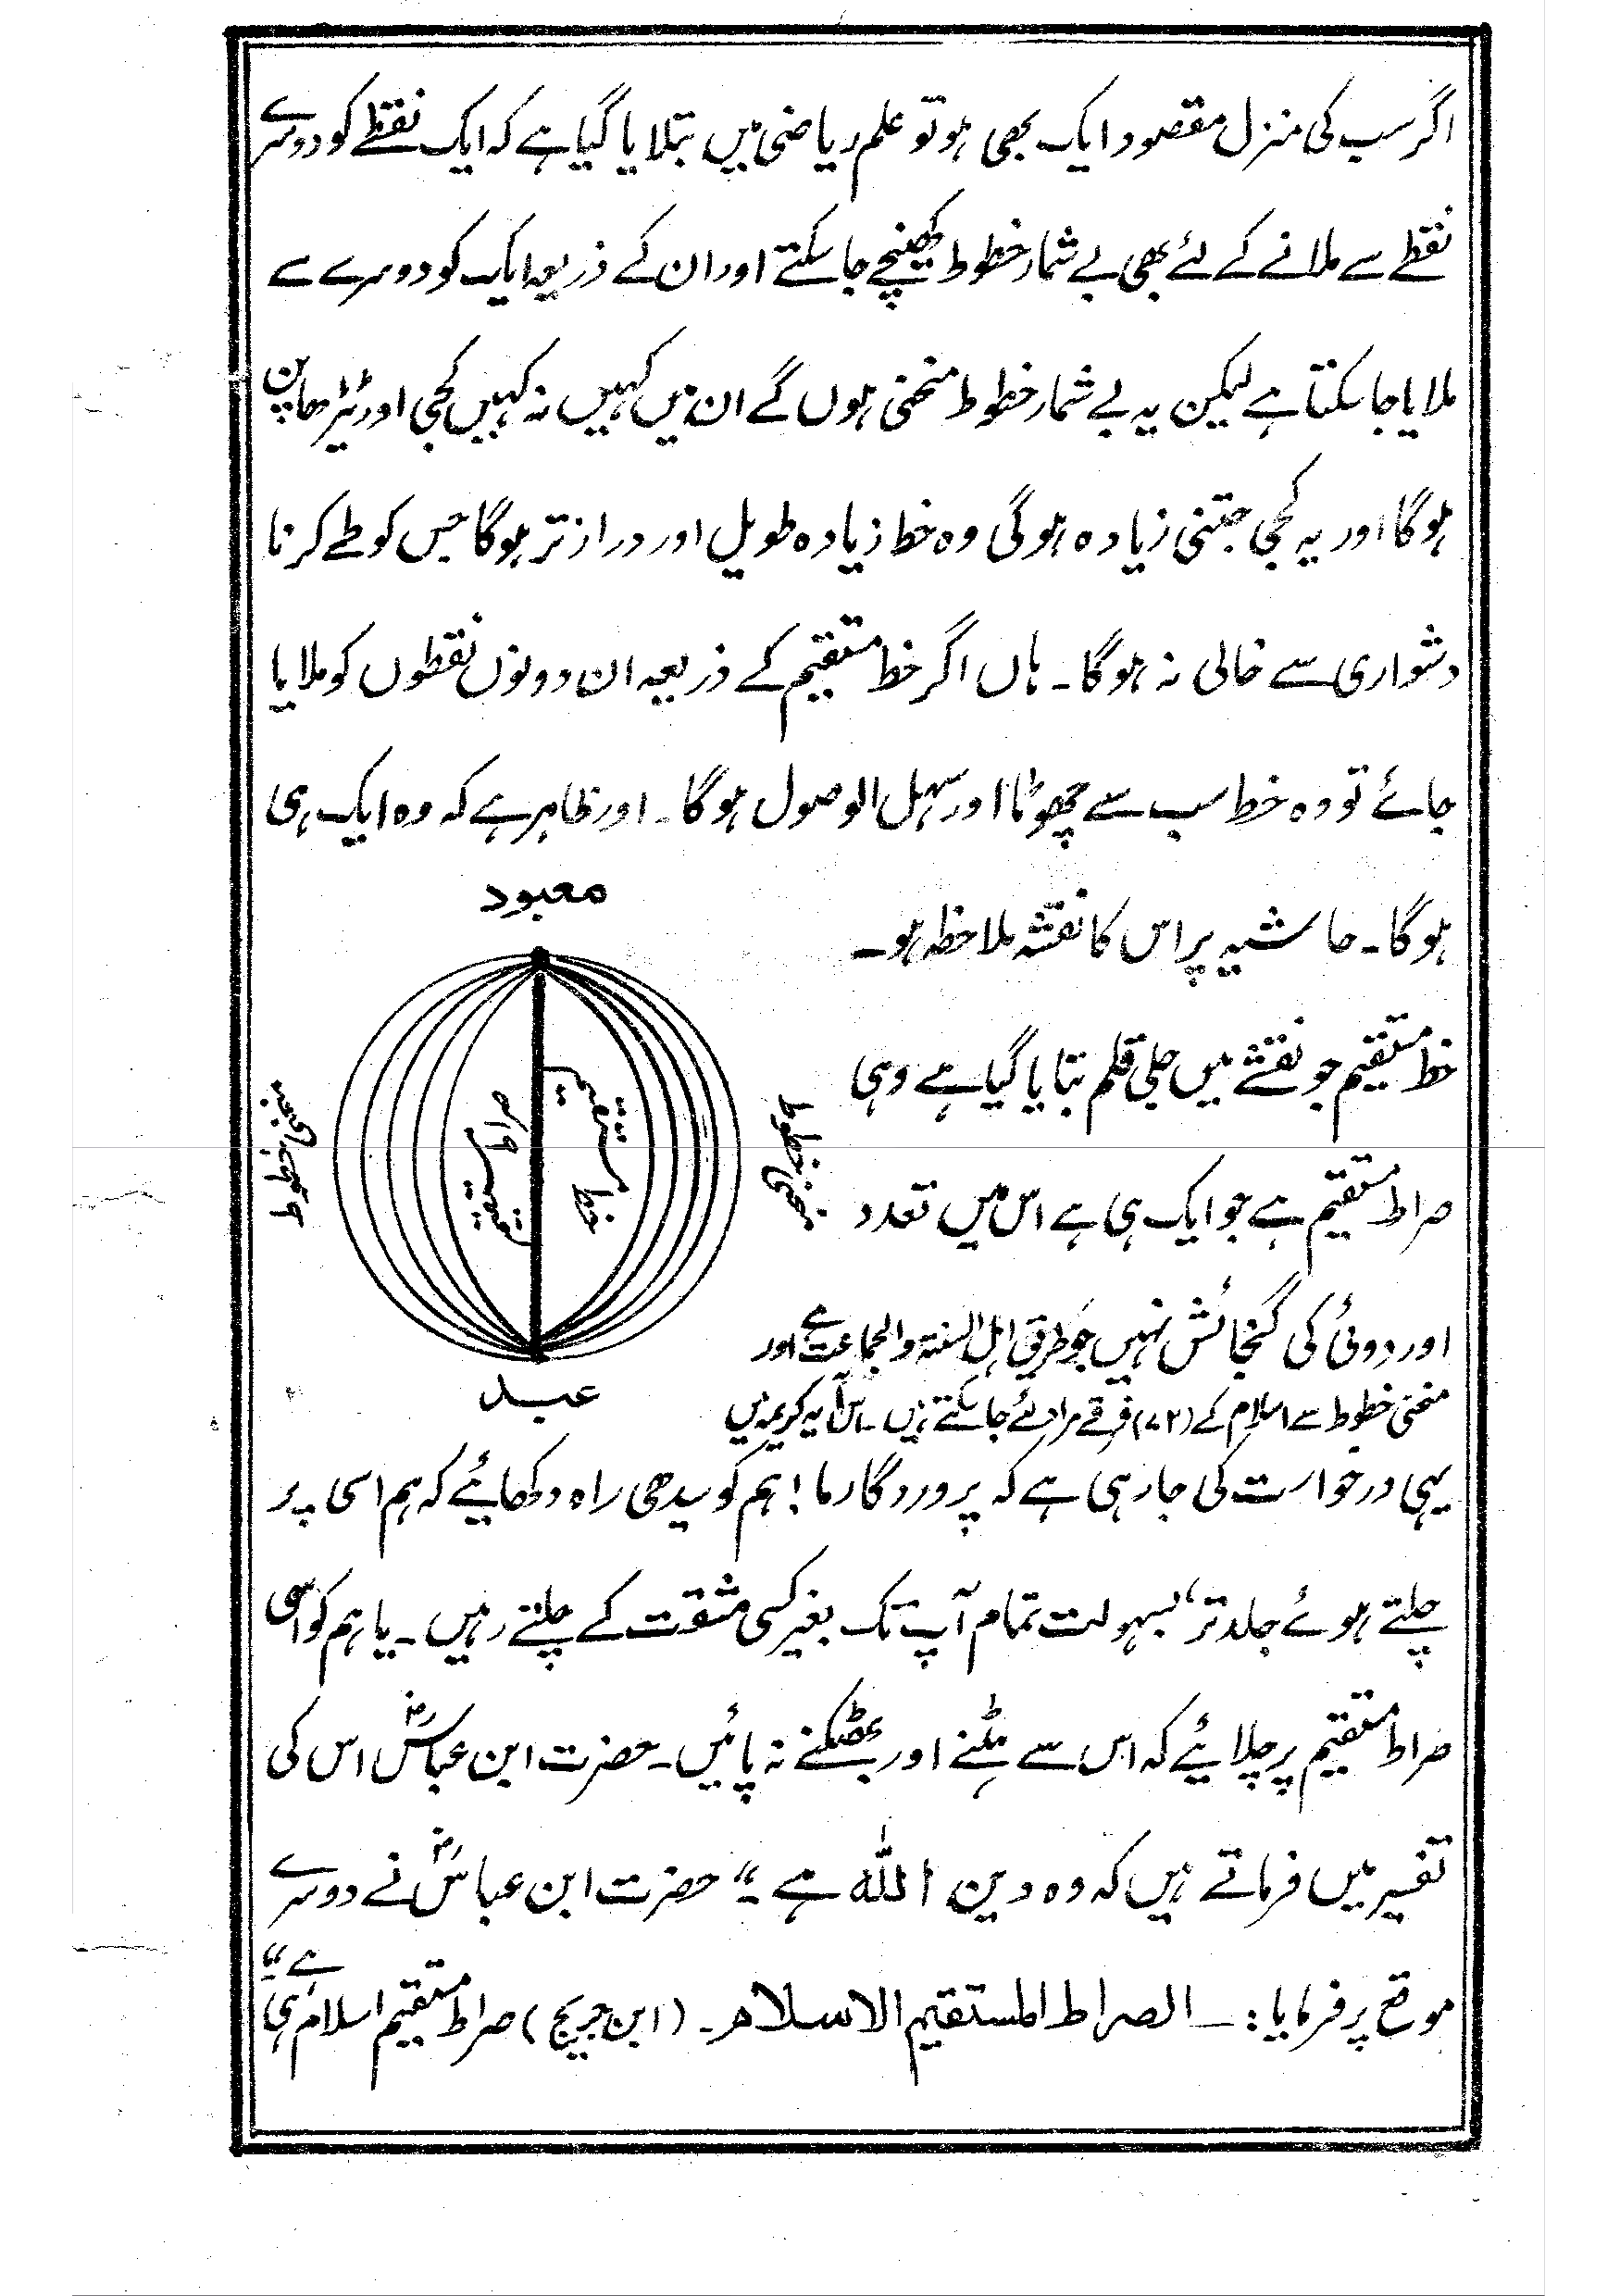 اگر سب کی منزل مقصود ایک بھی ہو تو علم ریاضی میں بتلایا گیا ہے کہ ایک نقطے کو دوسرے
نقطے سے ملانے کے لئے بھی بے شمار خطوط کھینچے جا سکتے اور ان کے ذریعہ ایک کو دوسرے سے
ملایا جا سکتا ہے لیکن یہ بے شمار خطوط منحنی ہوں گے ان میں کہیں نہ کہیں کجی اور ٹیڑھا پن
ہوگا اور یہ کجی جتنی زیادہ ہوگی وہ خط زیادہ طویل اور دراز تر ہوگا جس کو طے کرنا
دشواری سے خالی نہ ہوگا۔ ہاں اگر خط مستقیم کے ذریعہ ان دونوں نقطوں کو ملایا
جائے تو وہ خط سب سے چھوٹا اور سہل الوصول ہوگا۔ اور ظاہر ہے کہ وہ ایک ہی
ہوگا۔ حاشیہ پر اس کا نقشہ ملاحظہ ہو۔
معبود
خط مستقیم جو نقشے میں جلی قلم بتایا گیا ہے وہی
صراط مستقیم ہے جو ایک ہی ہے اس میں تعدد
منحنی خطوط
خط مستقیم
راہ مستقیم
اور دوئی کی گنجائش نہیں جو طریق اہل السنۃ والجماعت ہے اور
عبد
منحنی خطوط سے اسلام کے (۷۲) فرقے مراد لئے جا سکتے ہیں۔ اس آیہ کریمہ میں
یہی درخواست کی جا رہی ہے کہ پروردگار ما! ہم کو سیدھی راہ دکھائیے کہ ہم اسی پر
چلتے ہوئے جلد تر، بسہولت تمام آپ تک بغیر کسی مشقت کے چلتے رہیں۔ یا ہم کو اسی
صراط مستقیم پر چلائیے کہ اس سے ہٹنے اور بھٹکنے نہ پائیں۔ حضرت ابن عباسؓ اس کی
تفسیر میں فرماتے ہیں کہ وہ دین اللہ ہے۔“ حضرت ابن عباسؓ نے دوسرے
موقع پر فرمایا :۔ الصراط المستقیم الاسلام۔ (ابن جریج) صراط مستقیم اسلام ہی ہے۔“